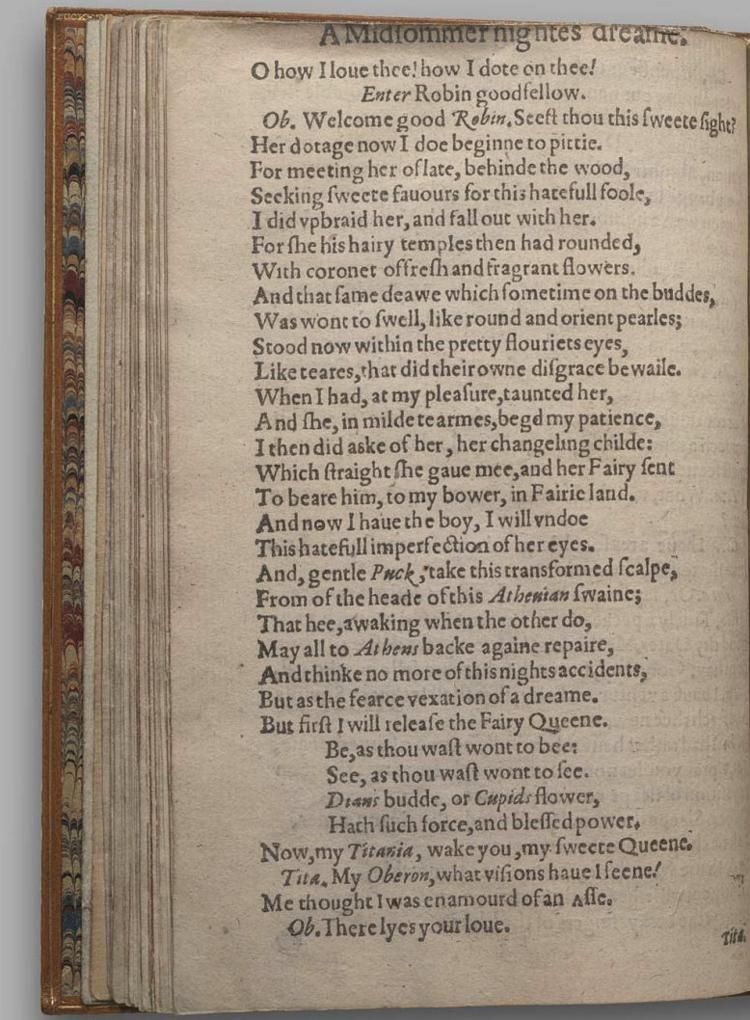 A Midſommer nightes dreame.
O how I loue thee! how I dote on thee!
Enter Robin goodfellow.
Ob. Welcome good Robin. Seeſt thou this ſweete ſight?
Her dotage now I doe beginne to pittie.
For meeting her of late, behinde the wood,
Seeking ſweete fauours for this hatefull foole,
I did vpbraid her, and fall out with her.
For ſhe his hairy temples then had rounded,
With coronet of freſh and fragrant flowers.
And that ſame deawe which ſometime on the buddes,
Was wont to ſwell, like round and orient pearles;
Stood now within the pretty flouriets eyes,
Like teares, that did their owne diſgrace bewaile.
When I had, at my pleaſure, taunted her,
And ſhe, in milde tearmes, begd my patience,
I then did aske of her, her changeling childe:
Which ſtraight ſhe gaue mee, and her Fairy ſent
To beare him, to my bower, in Fairie land.
And now I haue the boy, I will vndoe
This hatefull imperfection of her eyes.
And, gentle Puck, take this transformed ſcalpe,
From of the heade of this Athenian ſwaine;
That hee, awaking when the other do,
May all to Athens backe againe repaire,
And thinke no more of this nights accidents,
But as the fearce vexation of a dreame.
But firſt I will releaſe the Fairy Queene.
Be, as thou waſt wont to bee:
See, as thou waſt wont to ſee.
Dians budde, or Cupids flower,
Hath ſuch force, and bleſſed power.
Now, my Titania, wake you, my ſweete Queene.
Tita. My Oberon, what viſions haue I ſeene!
Me thought I was enamourd of an Aſſe.
Ob. There lyes your loue.
Tita.